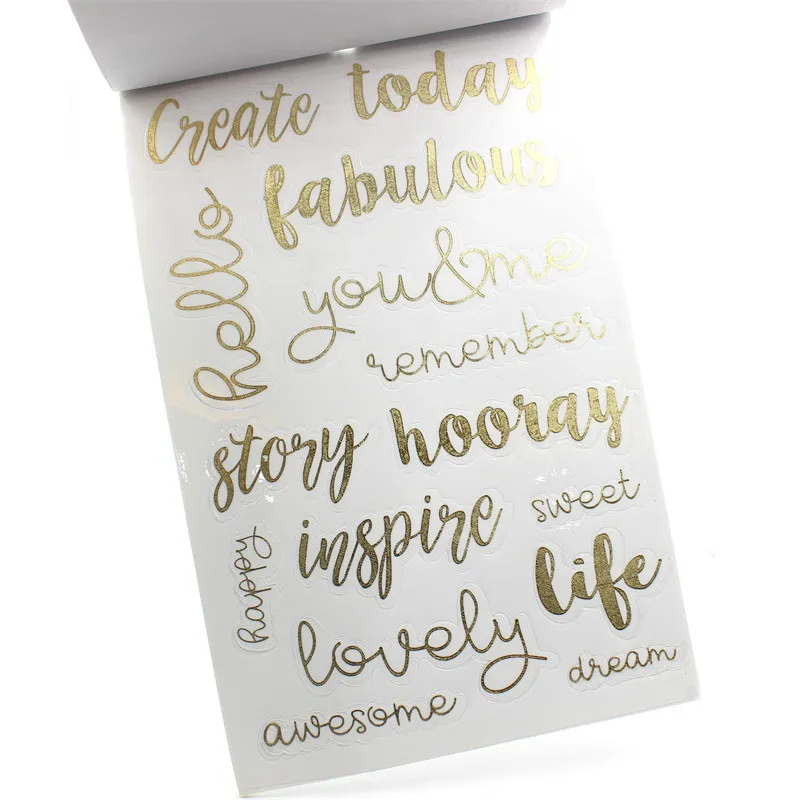 Create today
fabulous
hello
you&me
remember
story hooray
sweet
inspire
happy
life
lovely
dream
awesome